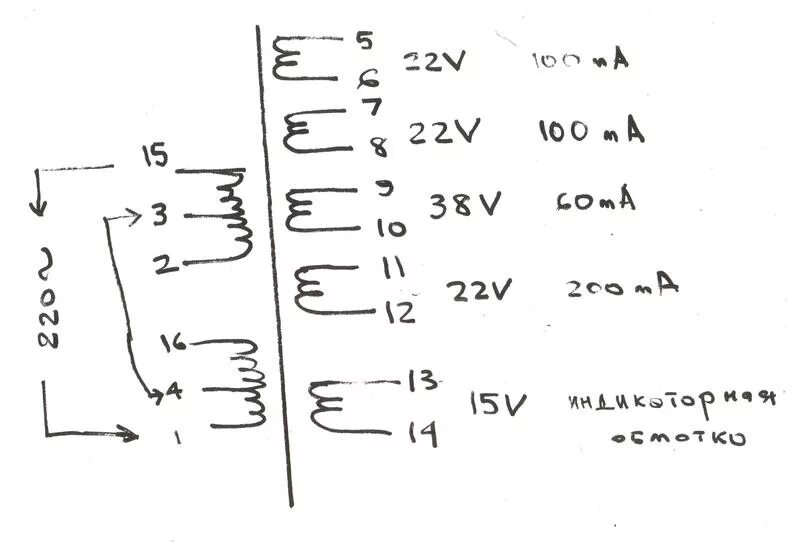 5
22V 100 mA
6
7
22V 100 mA
8
15
9
38V 60mA
3
10
2
11
22V 200 mA
12
220~
16
4
13
15V индикоторная
1
14
обмотко